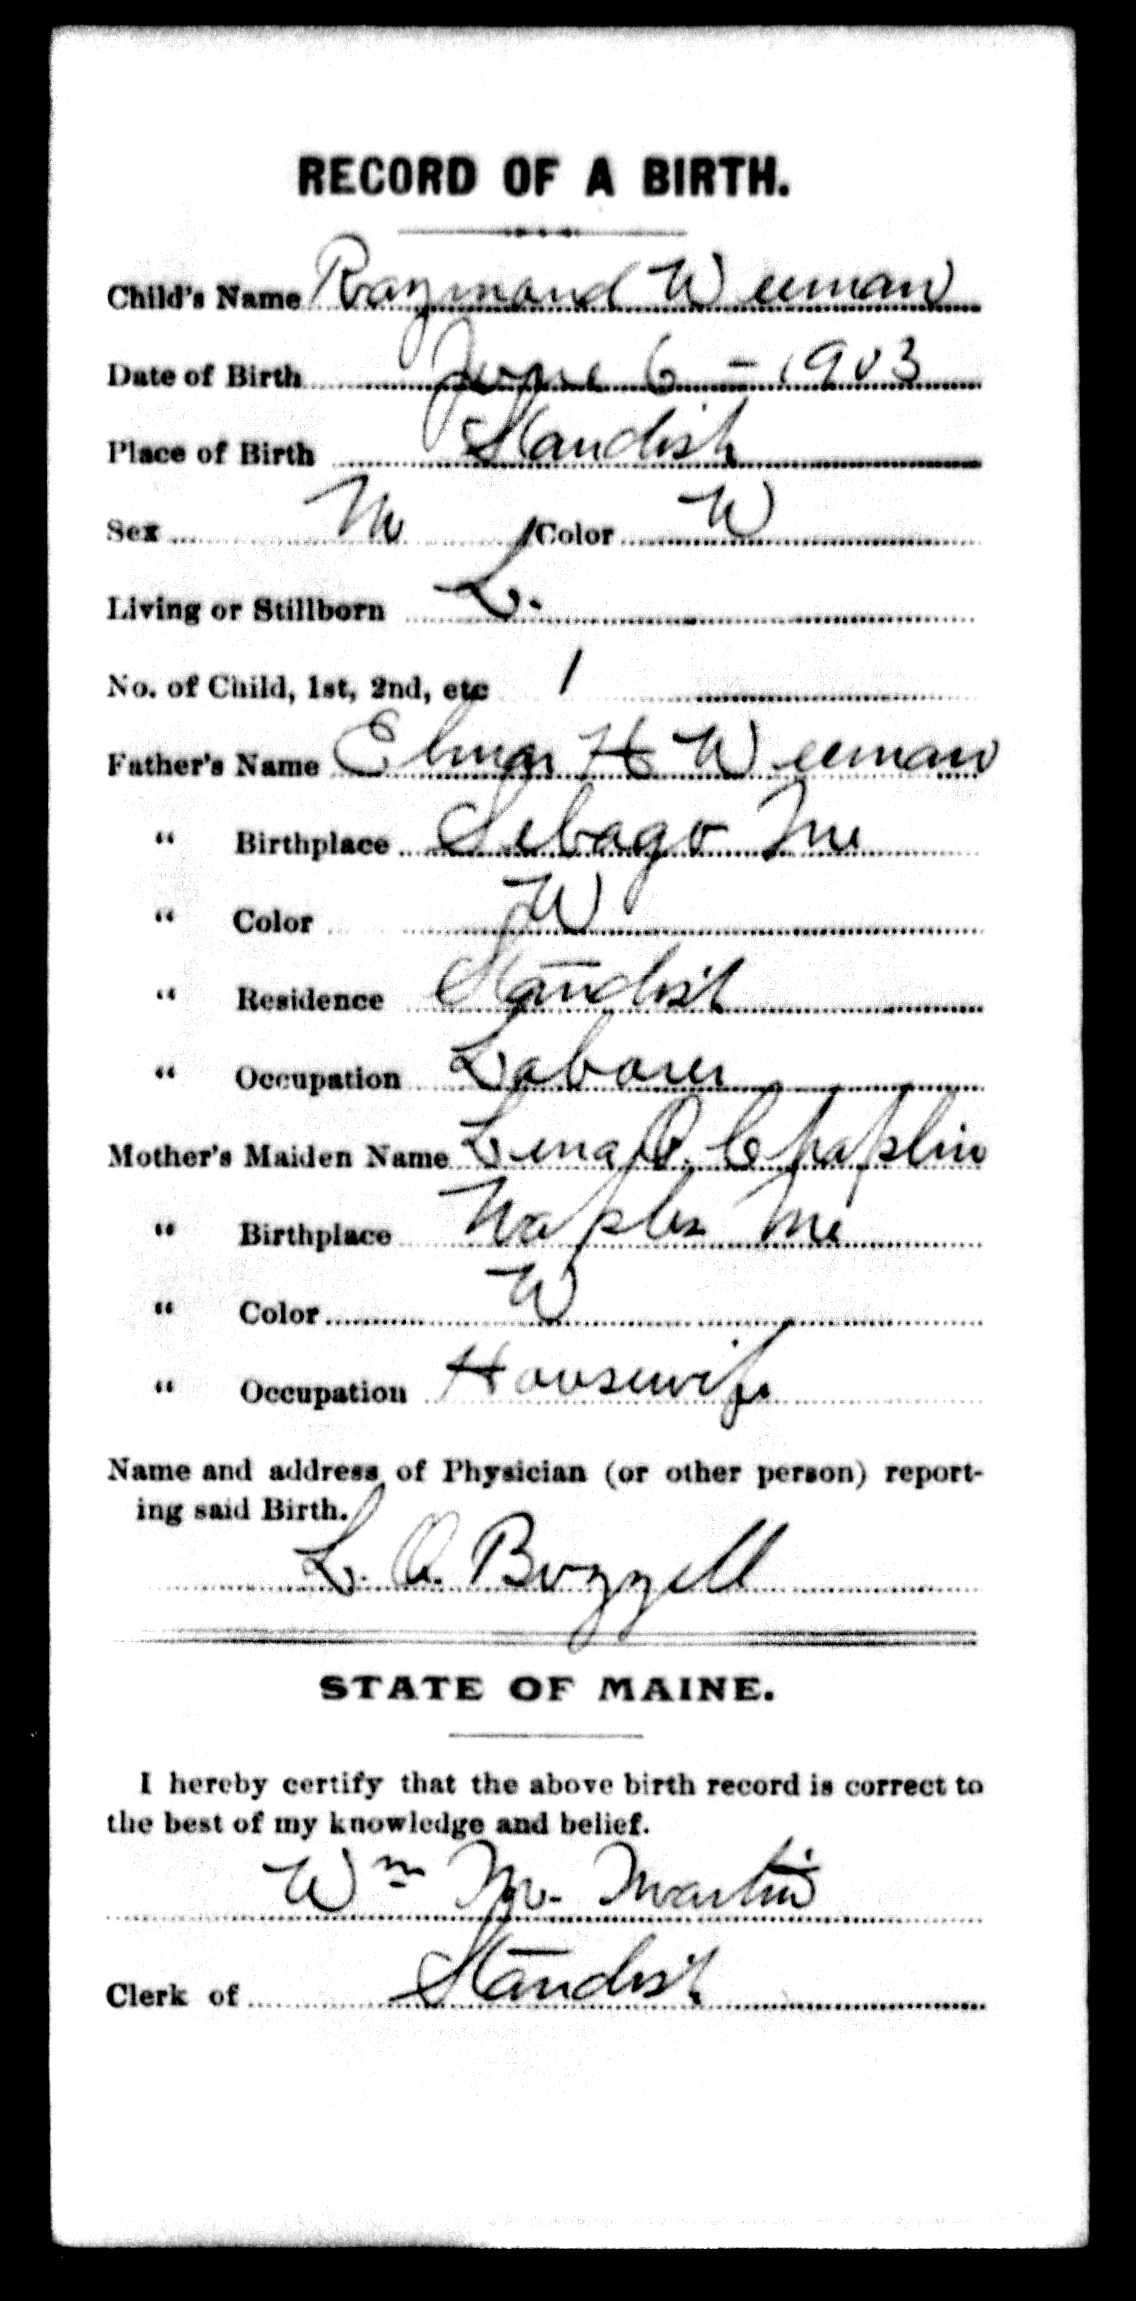 RECORD OF A BIRTH.
Child's Name Raymond Weeman
Date of Birth June 6 - 1903
Place of Birth Standish
Sex M Color W
Living or Stillborn L.
No. of Child, 1st, 2nd, etc 1
Father's Name Elmer H Weeman
" Birthplace Sebago Me
" Color W
" Residence Standish
" Occupation Laborer
Mother's Maiden Name Lena O. Chaplin
" Birthplace Naples Me
" Color W
" Occupation Housewife
Name and address of Physician (or other person) report-
ing said Birth.
L. O. Buzzell
STATE OF MAINE.
I hereby certify that the above birth record is correct to
the best of my knowledge and belief.
Wm M. Martin
Clerk of Standish